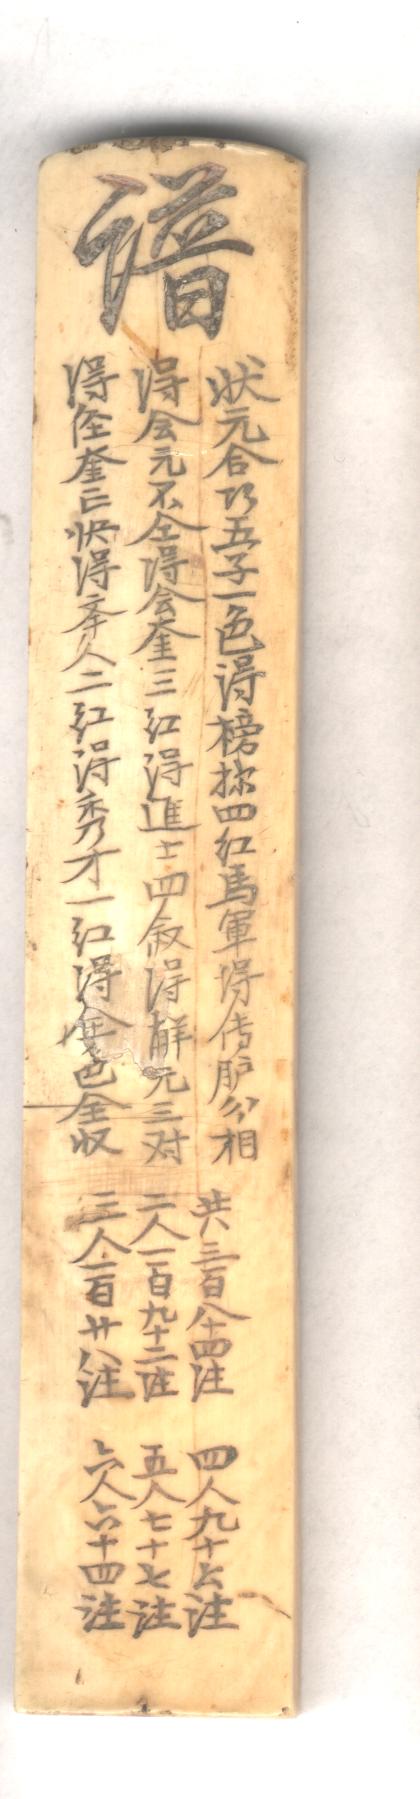 谱
状元合巧五子一色得榜 四红马軍得传胪分相
得会元不全得会奎三红得進士四叙得解元三对
得 奎 快得 人二红得秀才一红得 色全収
共三百八十四注
二人一百九十二注
三人一百廿八注
四人九十六注
五人七十七注
六人六十四注